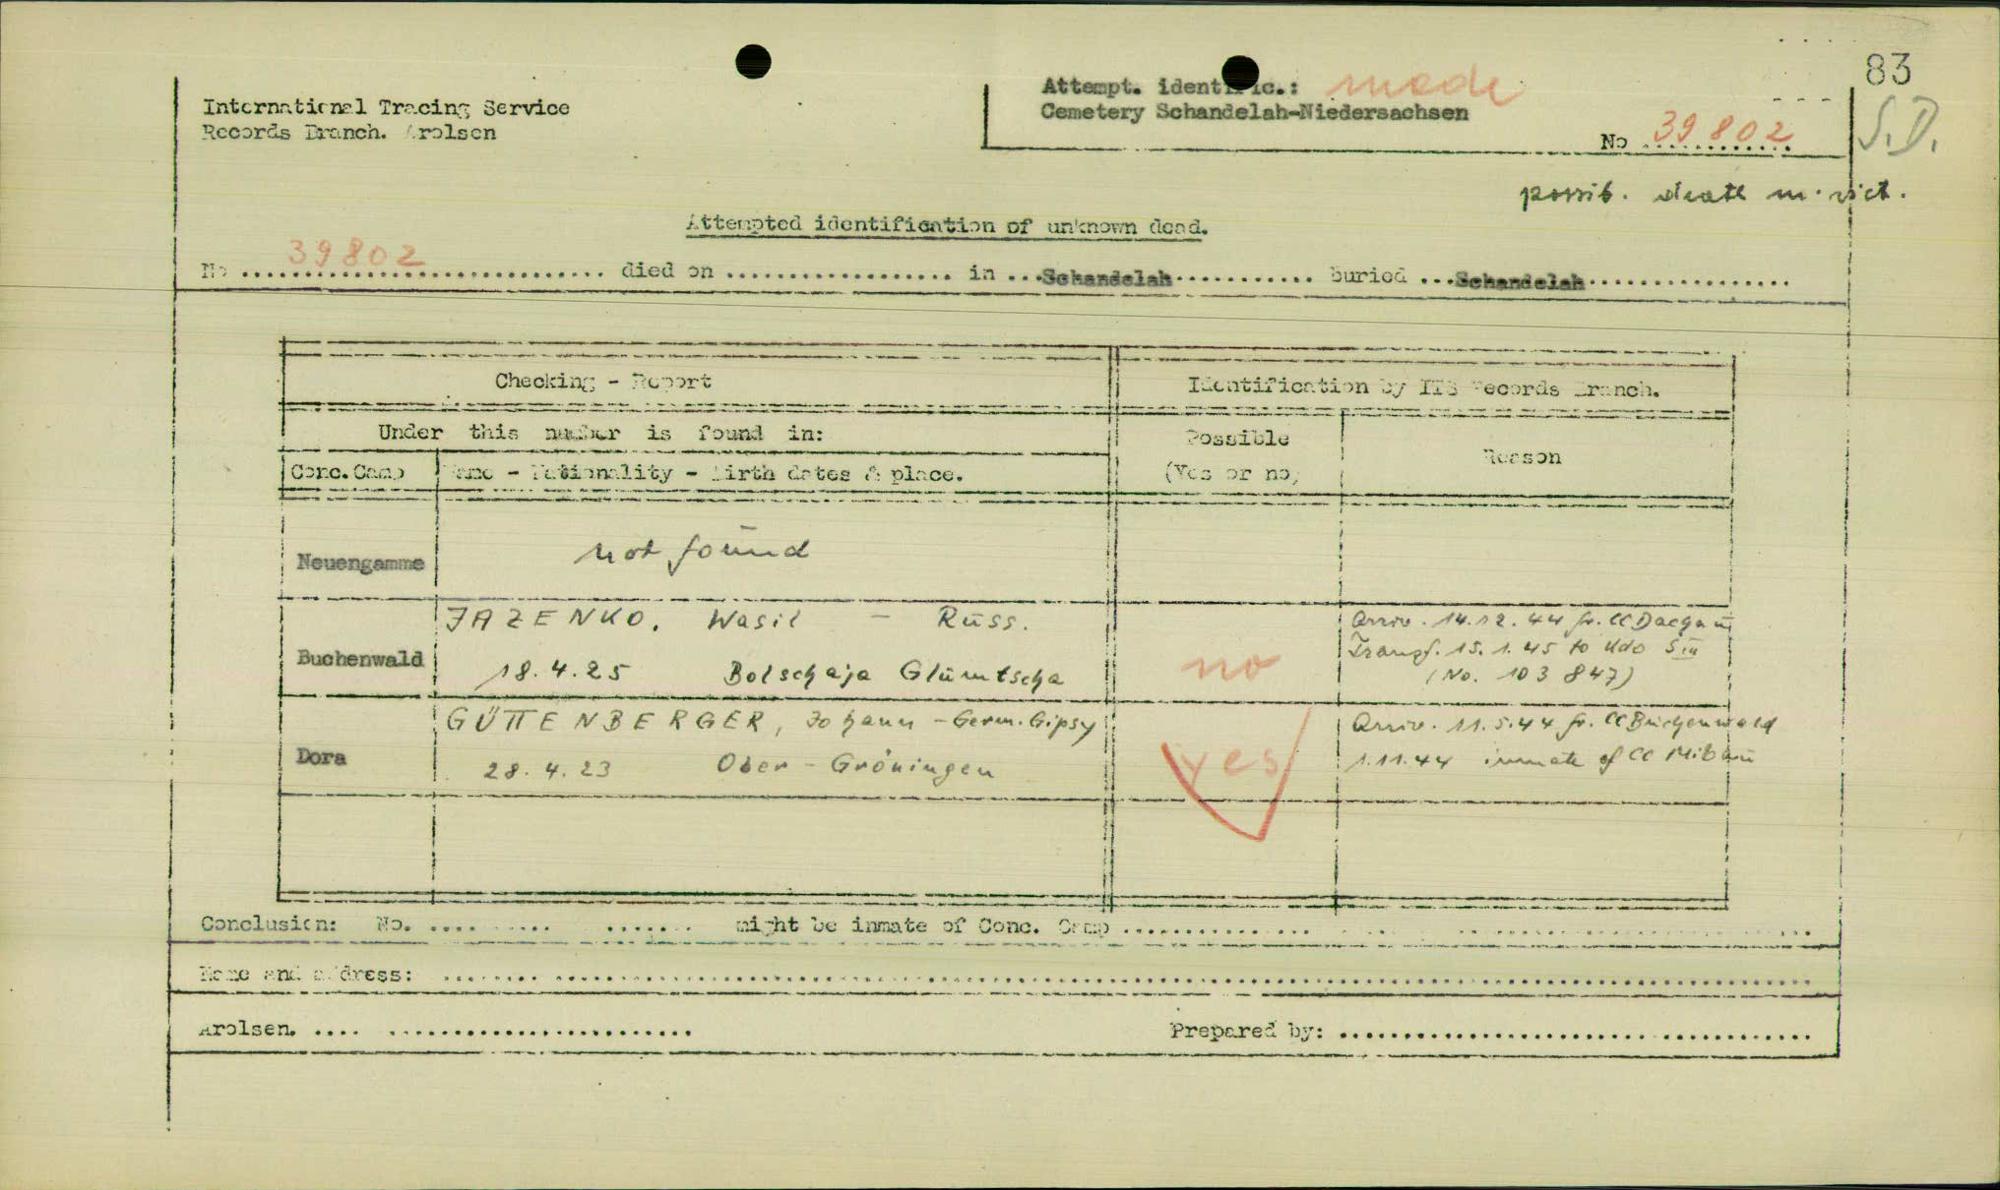 83
S.D.
International Tracing Service
Records Branch. Arolsen
Attempt. identific.: made
Cemetery Schandelah-Niedersachsen
No 39802
possib. death m. vict.
Attempted identification of unknown dead.
No 39802 died on .................. in ...Schandelah........... buried ...Schandelah.................
Checking - Report
Identification by ITS Records Branch.
Under this number is found in:
Possible
(Yes or no)
Reason
Conc. Camp
Name - Nationality - Birth dates & place.
Neuengamme
not found
Buchenwald
JAZENKO, Wasil - Russ.
18.4.25 Bolschaja Glumtscha
no
Arriv. 14.12.44 fr. CC Dachau
Transf. 15.1.45 to Kdo S III
(No. 103 847)
Dora
GÜTTENBERGER, Johann - Germ. Gipsy
28.4.23 Ober - Gröningen
yes
Arriv. 11.5.44 fr. CC Buchenwald
1.11.44 inmate of CC Mibau
Conclusion: No. .... ..... ....... might be inmate of Conc. Camp ..............
Name and address: ........
Arolsen. .... ........................
Prepared by: ........................